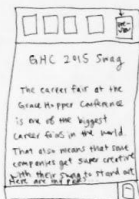 GHC 2015 Swag
The career fair at the
Grace Hopper Conference
is one of the biggest
career fairs in the world.
That also means that some
companies get super creative
with their swag to stand out
Here are my